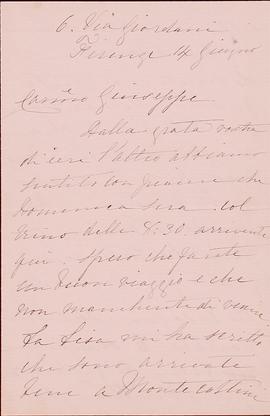 6. Via Giordani
Firenze 14 Giugno
Carino Giuseppe
Dalla grata vostra
di ieri l'altro abbiamo
sentito con piacere che
Domenica sera col
treno delle 8.30 arrivate
qui. Spero che fate
un buon viaggio e che
non mancherete di venire
La Lisa mi ha scritto
che sono arrivate
bene a Montecatini